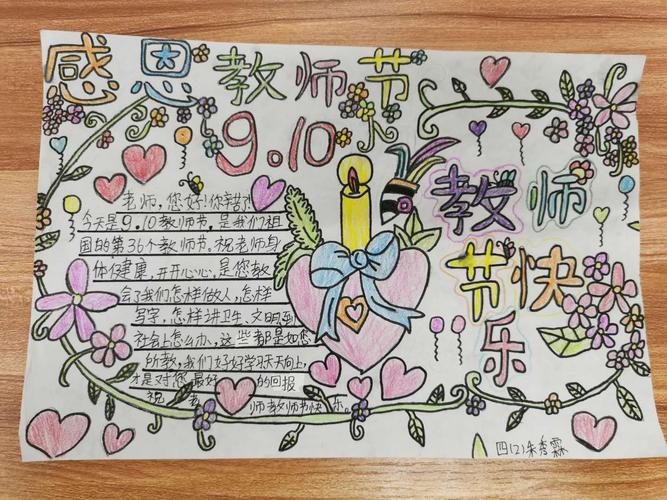 感恩教师节
9.10
老师，您好！你辛苦了！
今天是9.10教师节，是我们祖
国的第36个教师节，祝老师身
体健康，开开心心，是您教
会了我们怎样做人，怎样
写字，怎样讲卫生、文明到
社会上怎么办，这些都是如您
所教，我们好好学习天天向上，
才是对您最好的回报
祝老师教师节快乐。
教师
节快
乐
四(2)朱秀霖